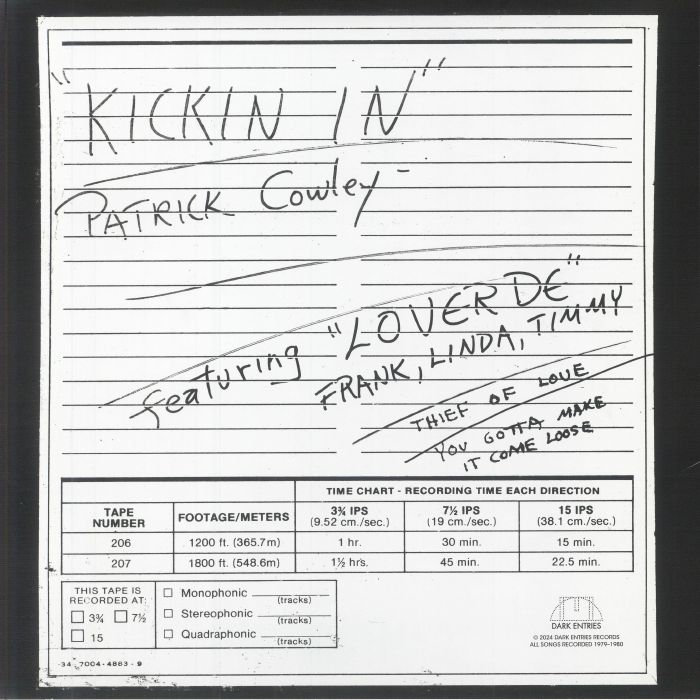 "KICKIN IN"
PATRICK Cowley -
featuring "LOVERDE"
FRANK, LINDA, TIMMY
THIEF OF LOVE
YOU GOTTA MAKE
IT COME LOOSE
TIME CHART - RECORDING TIME EACH DIRECTION
TAPE NUMBER FOOTAGE/METERS 3¾ IPS (9.52 cm./sec.) 7½ IPS (19 cm./sec.) 15 IPS (38.1 cm./sec.)
206 1200 ft. (365.7m) 1 hr. 30 min. 15 min.
207 1800 ft. (548.6m) 1½ hrs. 45 min. 22.5 min.
THIS TAPE IS
RECORDED AT:
☐ 3¾ ☐ 7½
☐ 15
☐ Monophonic
(tracks)
☐ Stereophonic
(tracks)
☐ Quadraphonic
(tracks)
DARK ENTRIES
© 2024 DARK ENTRIES RECORDS
ALL SONGS RECORDED 1979-1980
34-7004-4863-9